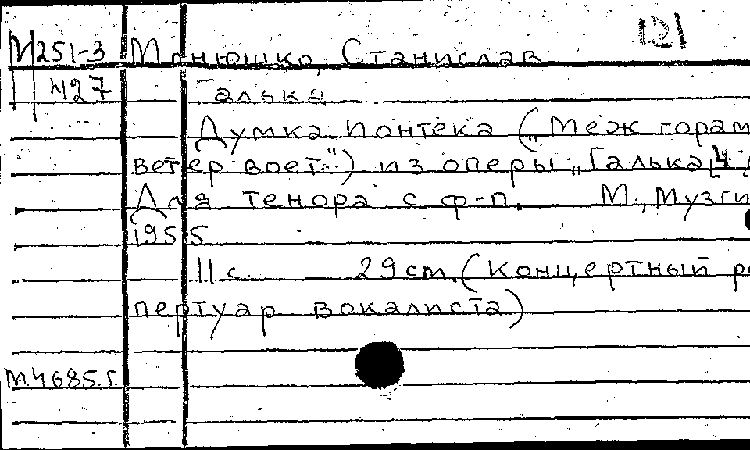 М251-3 Монюшко, Станислав 121
427 Галька
Думка Йонтека („Меж горам
ветер воет") из оперы „Галька
Для тенора с ф-п. М., Музги
1955
11 с. 29 cm. (Концертный ре
пертуар вокалиста)
М.4685.г.